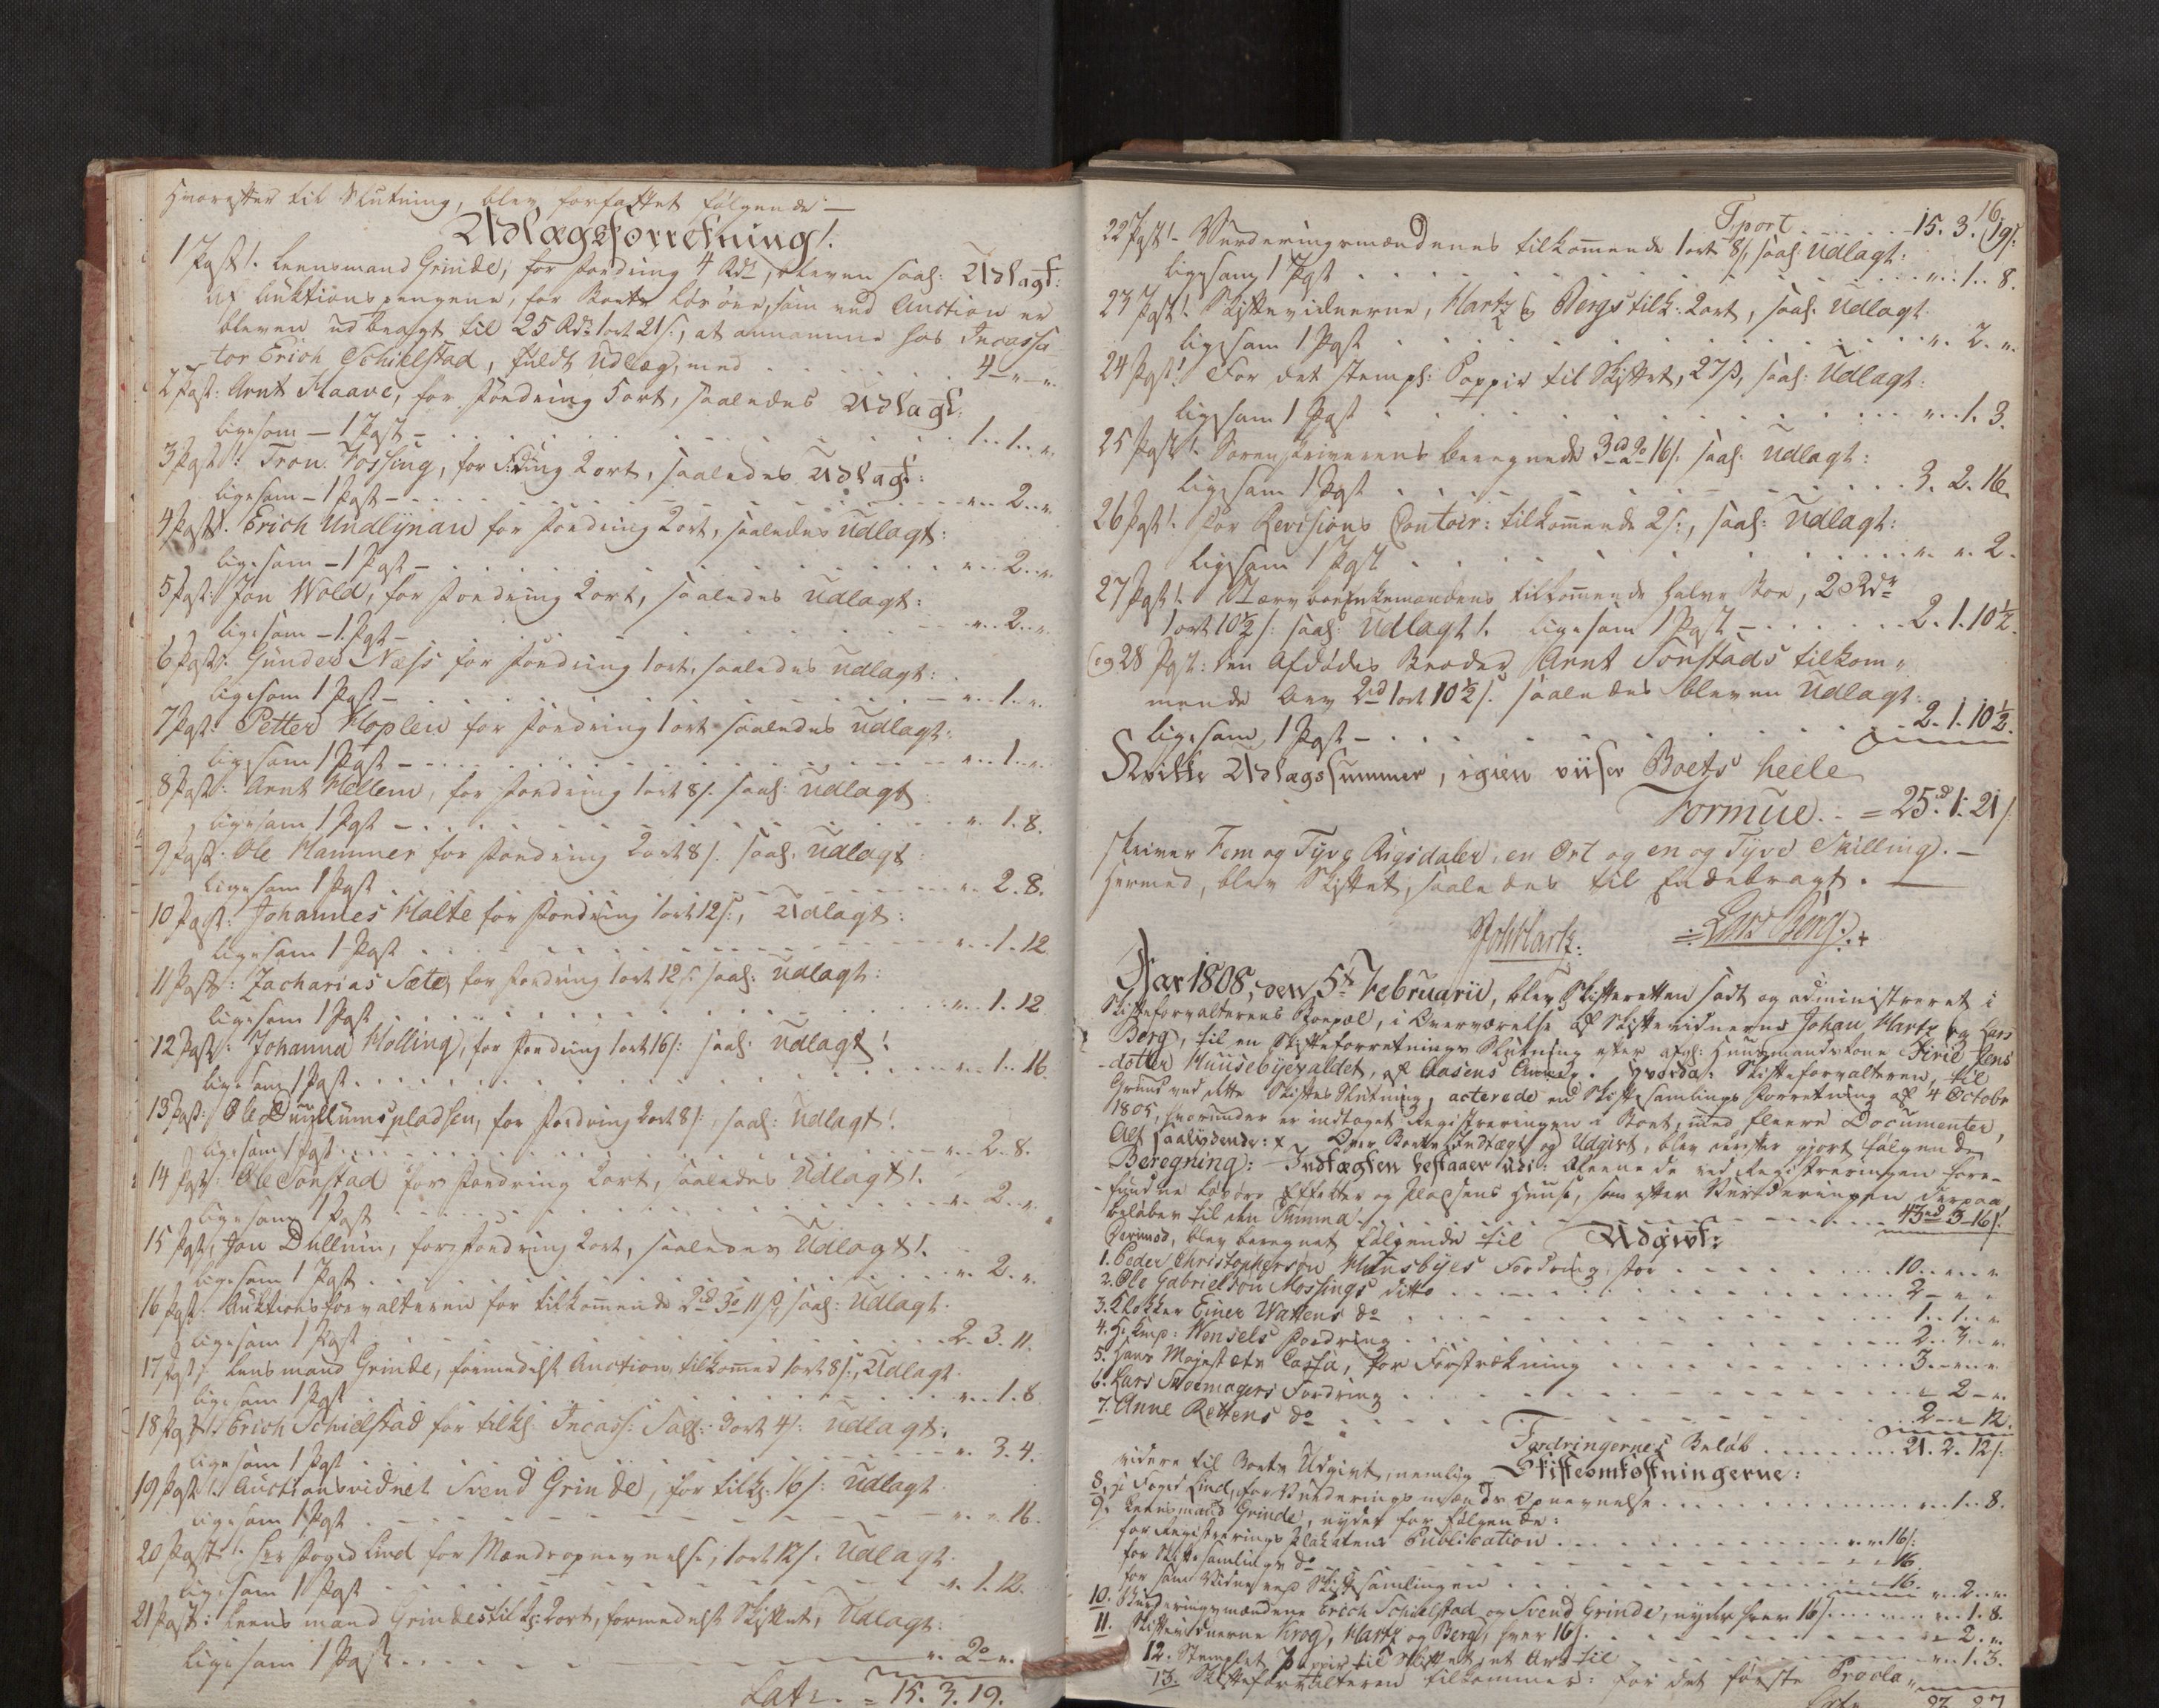 Hvorefter til Slutning, blev forfattet følgende —
Udlægsforretning!.
1 Post!. Leensmand Grinde, for Fordring 4 Rdr, bleven saal: Udlagt:
af Auktionspengene, for Boets Løsøre, som ved Auction er
bleven udbragt til 25 Rdr 1 ort 21 s., at annamme hos Incassa
tor Erich Schielstad, fuldt Udlæg, med . . . . . . 4 — „ — „.
2 Post: Arnt Staave, for Fordring 5 ort, saaledes Udlagt:
ligesom — 1 Post — . . . . . 1 . . 1 . . „.
3 Post: Tron Fossing, for F:ding 2 ort, saaledes Udlagt:
ligesom — 1 Post — . . . . . „ . . 2 . . „.
4 Post!. Erich Undlÿnau for Fordring 2 ort, saaledes Udlagt:
ligesom — 1 Post — . . . . . „ . . 2 . . „.
5 Post: Jon Wold, for Fordring 2 ort, saaledes Udlagt:
ligesom — 1. Post — . . . . . „ . . 2 . . „.
6 Post: Gunder Næss for Fordring 1 ort, saaledes Udlagt:
ligesom 1 Post — . . . . . „ . . 1 . . „.
7 Post: Petter Hoplen for Fordring 1 ort saaledes Udlagt:
ligesom 1 Post — . . . . . „ . . 1 . . „.
8 Post: Arnt Hellem, for Fordring 1 ort 8 s. saal: Udlagt
ligesom 1 Post — . . . . . „. 1. 8.
9 Post: Ole Hammer for Fordring 2 ort 8 s. saal: Udlagt
ligesom 1 Post . . . . . „. 2. 8.
10 Post: Johannes Halte for Fordring 1 ort 12 s:, Udlagt:
ligesom 1 Post . . . . . „ . . 1. 12
11 Post: Zacharias Sæter for Fordring 1 ort 12 s. saal: Udlagt:
ligesom 1 Post . . . . . „ . . 1. 12
12 Post: Johanna Holling, for Fordring 1 ort 16 s: saal: Udlagt!
ligesom 1 Post . . . . . „ . . 1 . . 16.
13 Post: Ole Dullumspladsen, for Fordring 2 ort 8 s:, saal: Udlagt!
ligesom 1 Post . . . . . „ . . 2. 8.
14 Post: Ole Sonstad for Fordring 2 ort, saaledes Udlagt!.
ligesom 1 Post . . . . . „. 2. „.
15 Post: Jon Dullum, for Fordring 2 ort, saaledes Udlagt!.
ligesom 1 Post . . . . . „. 2. „.
16 Post: Auktionsforvalteren for tilkommende 2 rd 3 o 11 s, saal: Udlagt.
ligesom 1 Post . . . . . 2. 3. 11.
17 Post: Lensmand Grinde, formedelst Auction, tilkommer 1 ort 8 s:, Udlagt.
ligesom 1 Post . . . . . „. 1. 8
18 Post: Erich Schielstad for tilk: Incass: Sal: 3 ort 4 s: Udlagt:
ligesom 1 Post . . . . . „. 3. 4.
19 Post: Auctionsvidnet Svend Grinde, for tilk: 16 s: Udlagt
ligesom 1 Post . . . . . „. „. 16.
20 Post: Hr: Foged Lind for Mændsopnevnelse, 1 ort 12 s: Udlagt.
ligesom 1 Post . . . . . „. 1. 12.
21 Post: Leensmand Grindes tilk: 2 ort, formedelst Skiftet, Udlagt:
ligesom 1 Post . . . . . „. 2 o „.
Lat: . = 15. 3. 19.
16
Tport . . . . . 15. 3. 19 s:
22 Post!. Vurderingsmændenes tilkommende 1 ort 8 s, saal: Udlagt:
ligesom 1 Post . . . . . „. 1. 8.
23 Post!. Skiftevidnerne, Hartz og Bergs tilk: 2 ort, saal: Udlagt
ligesom 1 Post . . . . . „. 2. „.
24 Post! For det stempl: Pappir til Skiftet, 27 s, saal: Udlagt:
ligesom 1 Post . . . . . „ . . 1. 3.
25 Post!. Sorenskriverens beregnede 3 rd 2 o 16 s. saal: Udlagt:
ligesom 1 Post . . . . . 3. 2. 16.
26 Post!. For Revisions Contoir: tilkommende 2 s:, saal: Udlagt:
ligesom 1 Post . . . . . „. „. 2.
27 Post!. Stervboe Enkemandens tilkommende halve Boe, 2 Rdr
1 ort 10½ s: saal: Udlagt!. ligesom 1 Post — . . . . . 2. 1. 10½.
og 28 Post: den Afdødes Broder Arnt Sonstads tilkom„
mende Arv 2 rd 1 ort 10½ s. saaledes bleven Udlagt
ligesom 1 Post — . . . . . 2. 1. 10½.
Hvilke Udlagssummer, igien viiser Boets heele
Formue . . = 25 rd. 1. 21 s.
skriver Fem og Tÿve Rigsdaler, en Ort og en og Tÿve Skilling. —
Hermed, blev Skiftet, saaledes til Endebragt. —
Joh Hartz. Lars Berg.
Aar 1808, den 5te Februarii, blev Skifteretten sadt og administreret i
Skifteforvalterens Boepæl, i Overværelse af Skiftevidnerne Johan Hartz og Lars
Berg, til en Skifteforretnings Slutning efter afg: Huusmandskone Sirie Jens
-dotter Huusebÿevaldet, af Aasens Annex. Hvorda: Skifteforvalteren, til
Grund ved dette Skiftes Slutning, acterede en Skiftesamlings Forretning af 4 Octobr
1805, hvorunder er indtaget Registreringen i Boet, med fleere Documenter,
Alt saalÿdende: x Over Boets Indtægt og Udgivt, blev derefter gjort følgende
Beregning: Indtægten bestaaer udi: Aleene de ved Registreringen fore-
-fundne Løsøre Effecter og Pladsens Huuse, som efter Vurderingen derpaa
beløber til den Summa . . . . . 43 rd 3 — 16 s!
Derimod, blev beregnet følgende til Udgivt:
1. Peder Christophersøn Huusbÿes Fordring, stor . . . . . 10 . . „ . . „
2. Ole Gabrielsøn Mossings ditto . . . . . 2 — „ — „
3. Klokker Einer Wattens do . . . . . 1 . . 1 . . „
4. Hr: Cap: Wensels Fordring . . . . . 2 . . 3 . . „.
5. Hans Majestæts Cassa, for Forstrækning . . . . . 3 . . „ . . „.
6. Lars Skoemagers Fordring . . . . . „ 2 — „.
7. Anne Rettens do . . . . . 2 — „ — 12.
Fordringernes Beløb . . . . . 21. 2. 12 s:
videre til Boets Udgivt, nemlig Skifteomkostningerne:
8. Hr Foged Lind, for Vurderingsmænds Opnevnelse . . . . . „ . . 1 . . 8.
9. Leensmand Grinde, nÿder for følgende:
for Registrerings Plakatens Publication . . . . . „. „. 16 s:
for Skiftesamlings do . . . . . „. „ 16.
for som Vidne ved Skiftesamlingen . . . . . 16. „ . . 2 . . „.
10. Vurderingsmændene Erich Schielstad og Svend Grinde, nÿder hver 16 s. . . . . „ . . 1. 8.
11. Skiftevidnerne Krog, Hartz og Berg, hver 16 s. . . . . „ 2. „.
12. Stemplet Pappir til Skiftet, et Ark til . . . . . „ . . 1. 3.
13. Skifteforvalteren tilkommer: for det første Procla„